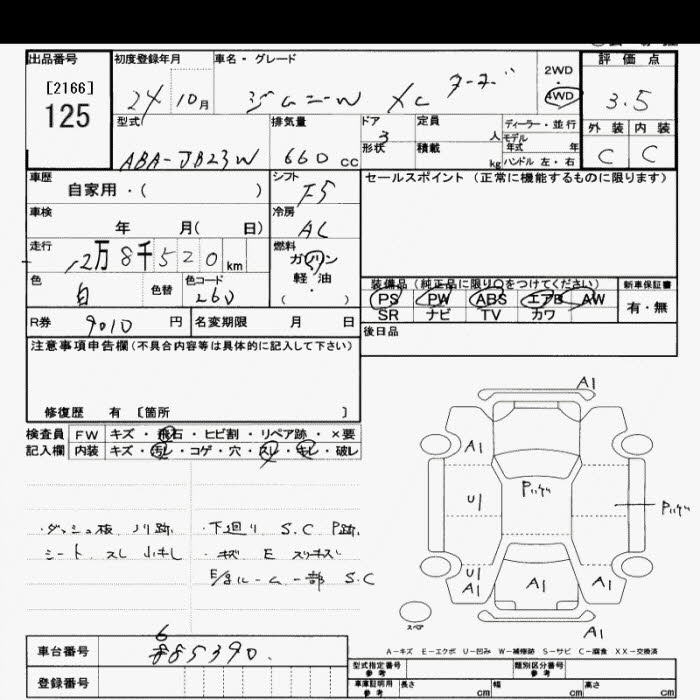 出品番号 初度登録年月 車名・グレード 2WD 評価点
[2166] 24 10月 ジムニーW XC ターボ ・ 3.5
125 4WD
型式 排気量 ドア 定員 ディーラー・並行 外装 内装
3 人 モデル年式 年
ABA-JB23W 660 CC 形状 積載 kg ハンドル 左・右 C C
車歴 シフト セールスポイント (正常に機能するものに限ります)
自家用・( ) F5
車検 冷房
年 月( 日) AC
走行 燃料
12万8千520km ガソリン
軽・油
色 色替 色コード ( ・ )
白 260
装備品 (純正品に限り○をつけてください) 新車保証書
PS PW ABS エアB AW 有・無
SR ナビ TV カワ
R券 9010 円 名変期限 月 日 後日品
注意事項申告欄(不具合内容等は具体的に記入して下さい)
修復歴 有 〔箇所 〕
検査員 FW キズ・飛石・ヒビ割・リペア跡・×要
記入欄 内装 キズ・汚レ・コゲ・穴・スレ・キレ・破レ
・ダッシュ板 ノリ跡
シート スレ 小キレ
・下廻り S.C P跡
・キズ E スリキズ
S.C
A1
A1
U1
U1
A1
A1
A1
A1
スペア
A-キズ E-エクボ U-凹み W-補修跡 S-サビ C-腐食 XX-交換済
車台番号 6 885390.
登録番号
型式指定番号 参考 類別区分番号 参考
車庫証明用 参考 長さ cm 幅 cm 高さ cm